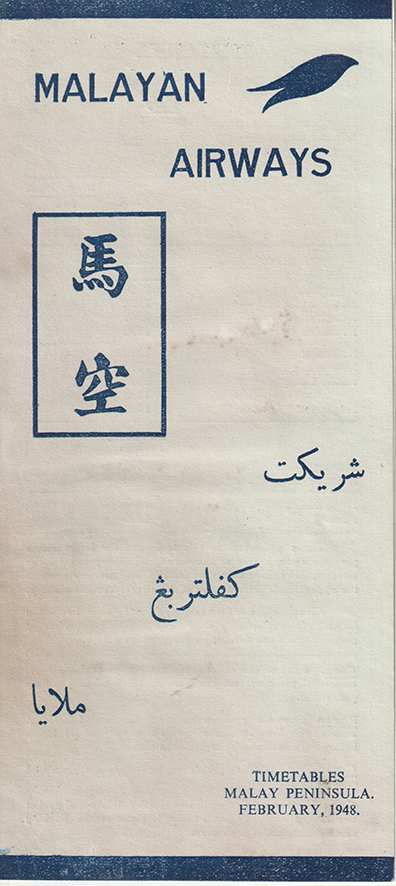 MALAYAN
AIRWAYS
馬
空
شريكت
كفلتربڠ
ملايا
TIMETABLES
MALAY PENINSULA.
FEBRUARY, 1948.